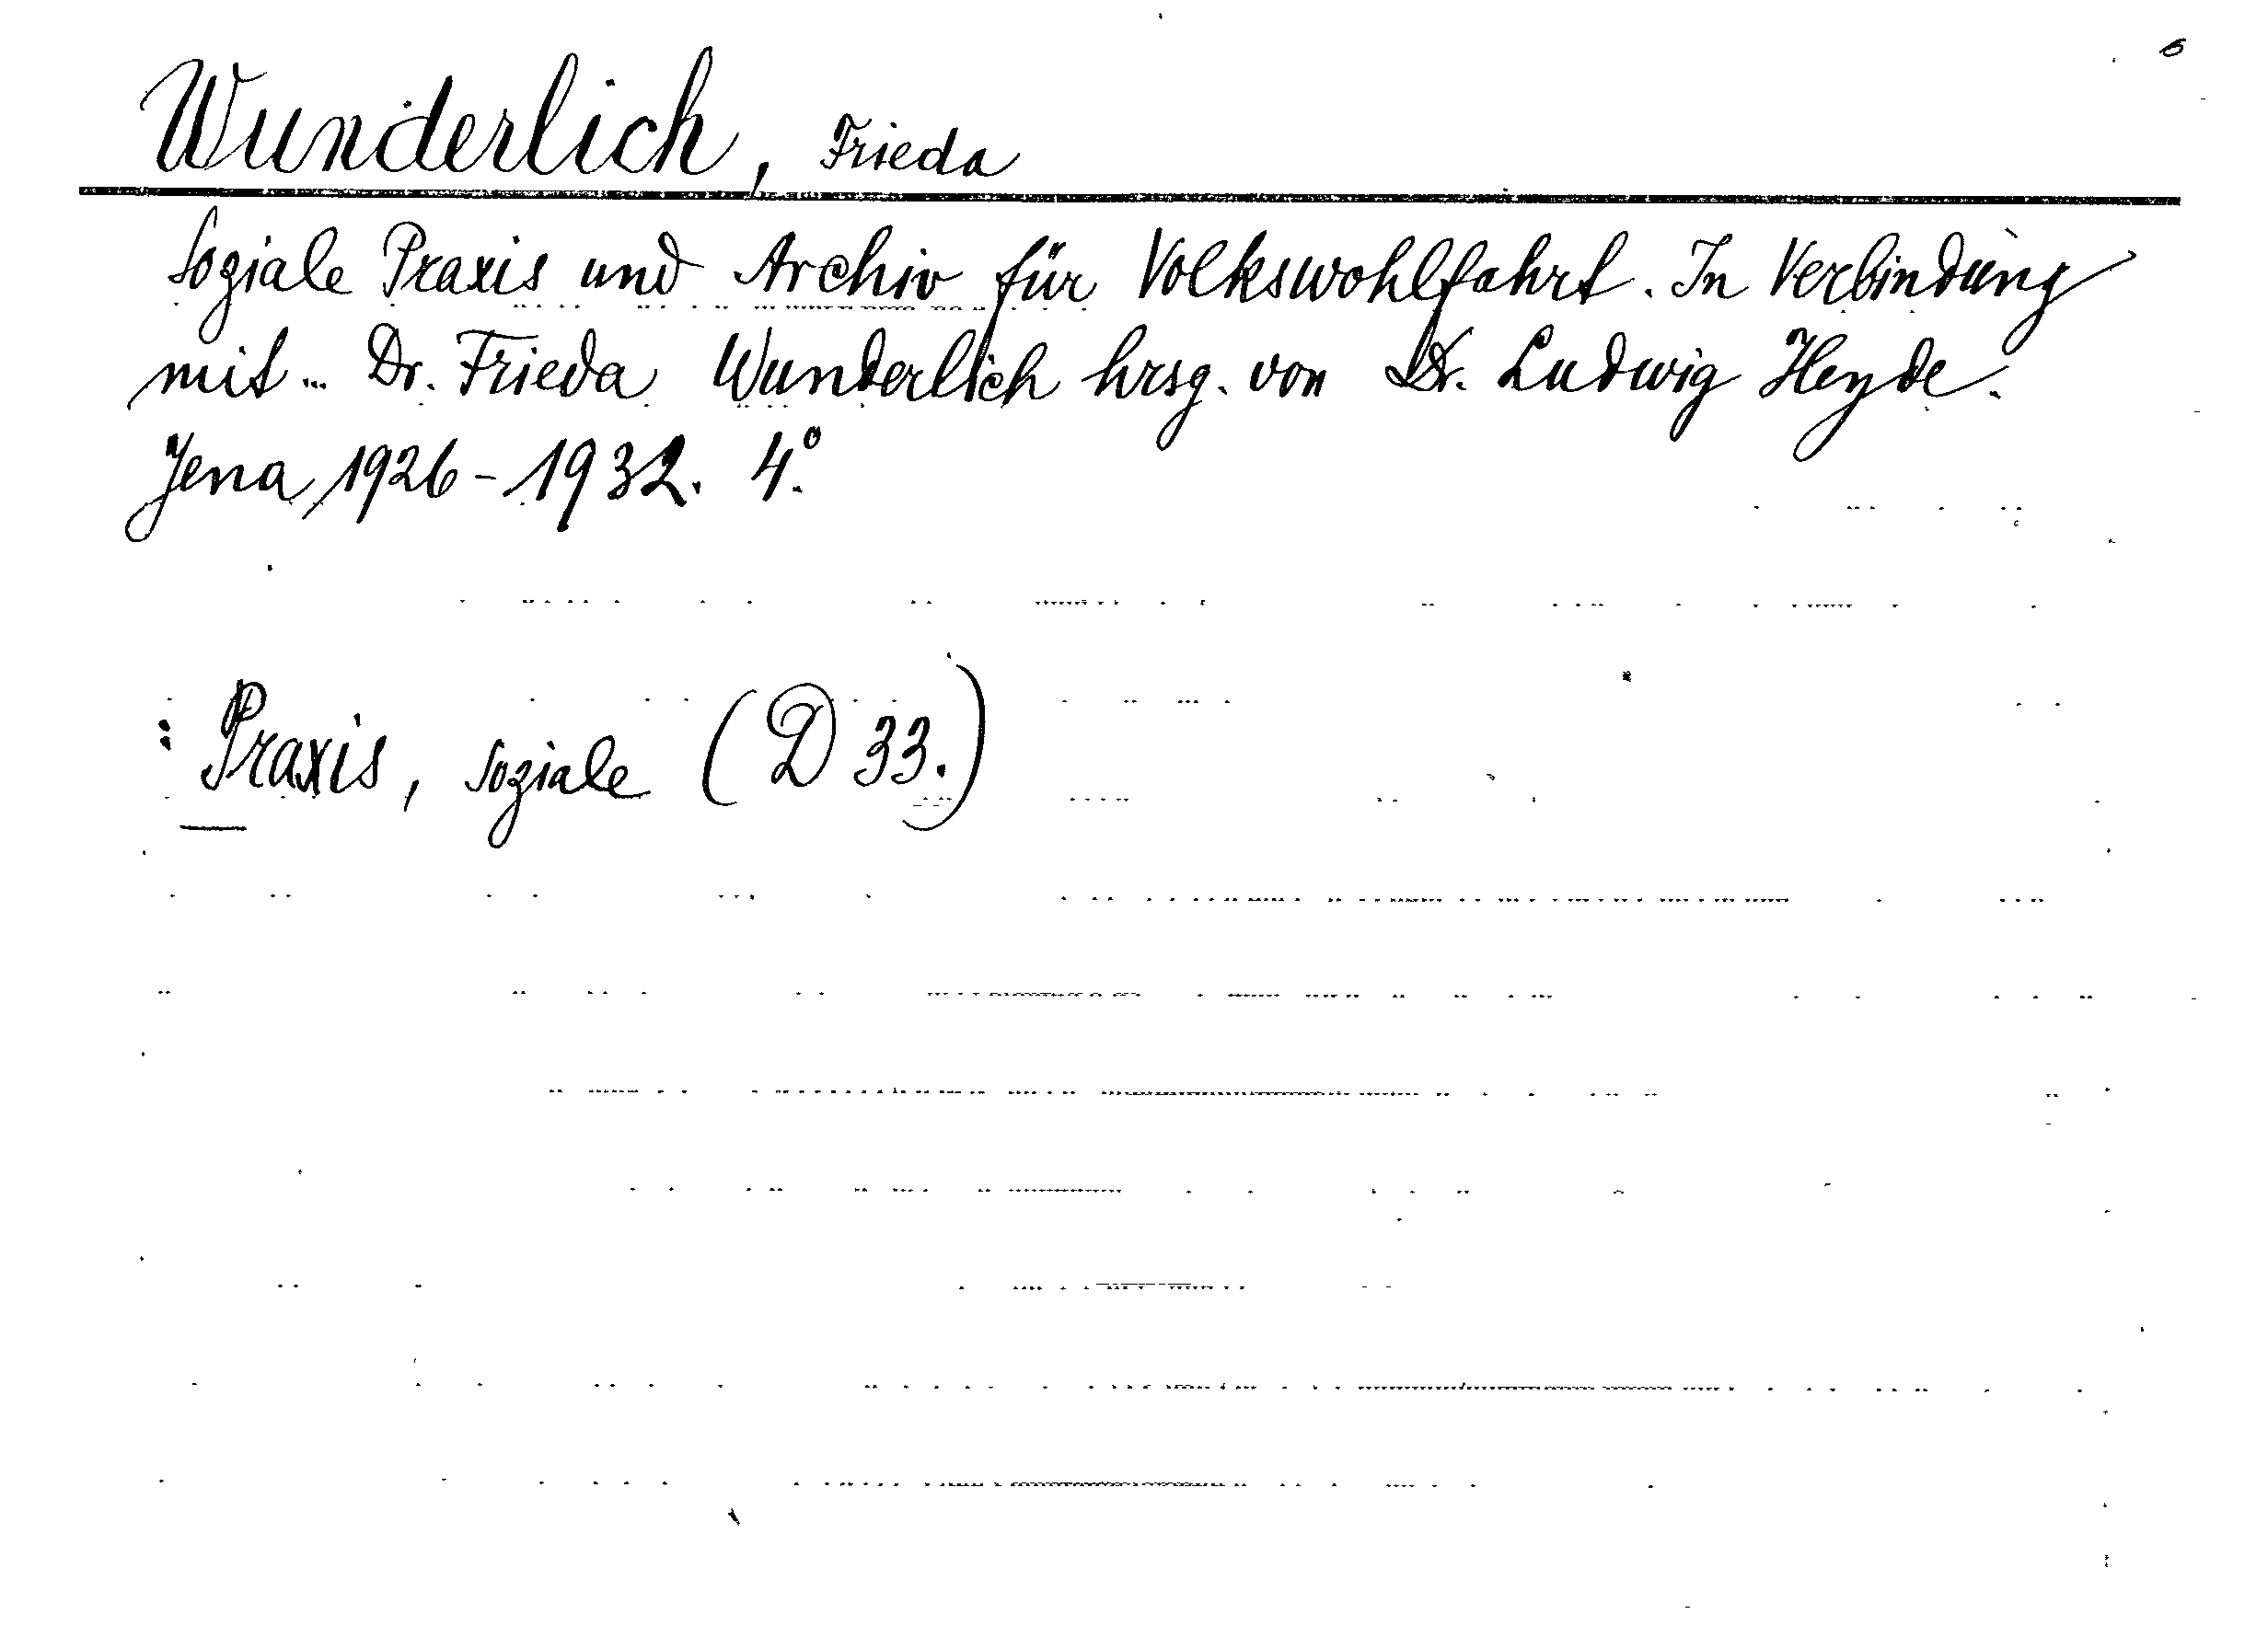 Wunderlich, Frieda
Soziale Praxis und Archiv für Volkswohlfahrt. In Verbindung
mit ... Dr. Frieda Wunderlich hrsg. von Dr. Ludwig Heyde.
Jena, 1926-1932. 4°.
: Praxis, soziale (D 33.)